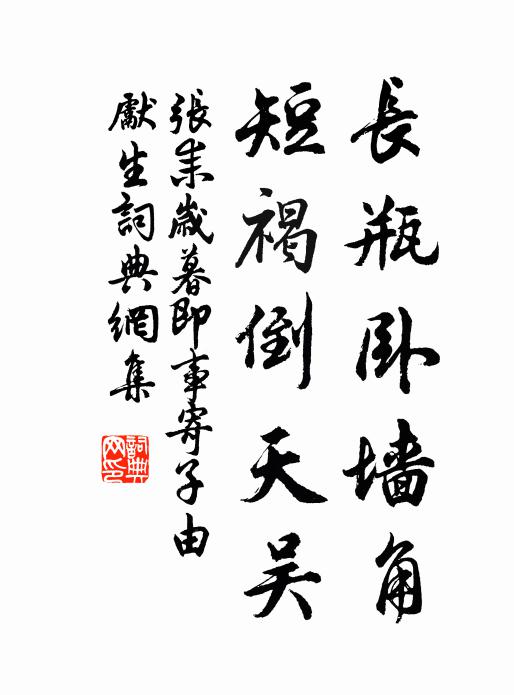 長瓶卧墙角
短褐倒天吴
張耒歲暮即事寄子由
獻生詞典網集
詞典
网印